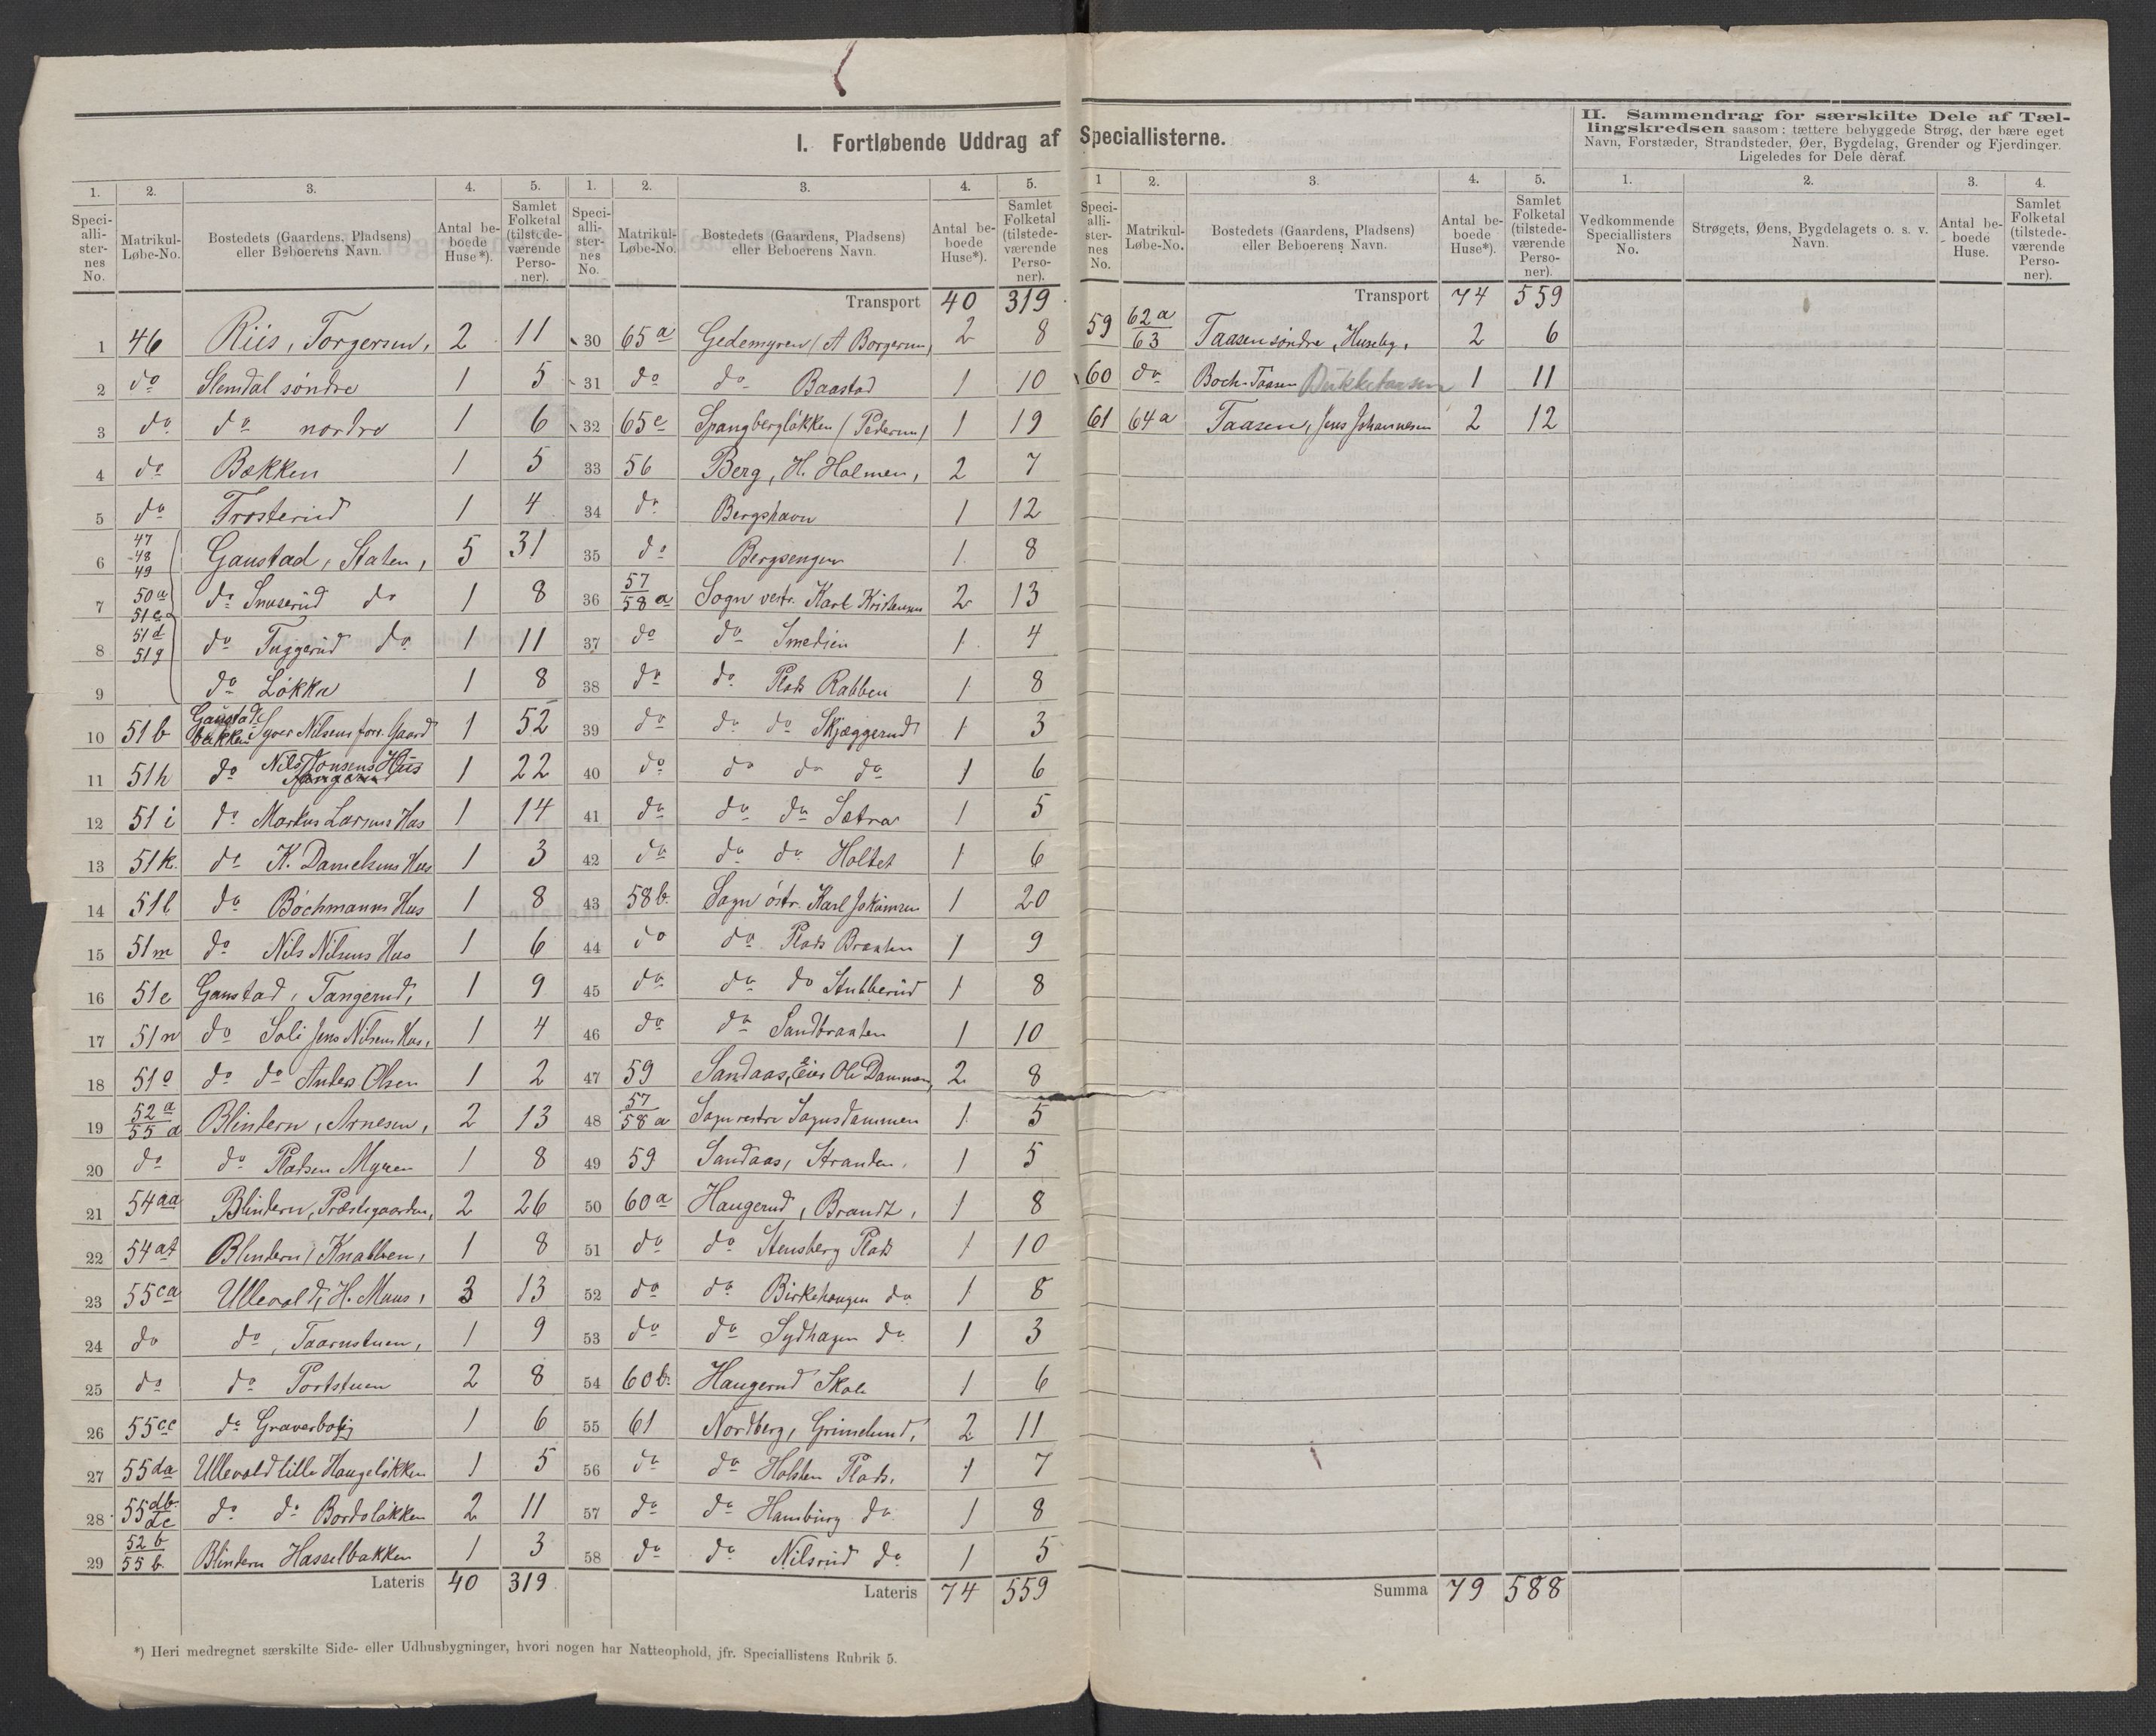 I. Fortløbende Uddrag af Speciallisterne.
II. Sammendrag for særskilte Dele af Tæl-
lingskredsen saasom: tættere bebyggede Strøg, der bære eget
Navn, Forstæder, Strandsteder, Øer, Bygdelag, Grender og Fjerdinger.
Ligeledes for Dele deraf.
1. 2. 3. 4. 5.
Speci-alli-ster-nes No. Matrikul-Løbe-No. Bostedets (Gaardens, Pladsens) eller Beboerens Navn. Antal be-boede Huse*). Samlet Folketal (tilstede-værende Perso-ner).
1 46 Riis, Torgersen, 2 11
2 do Slemdal søndre 1 5
3 do do nordre 1 6
4 do Bækken 1 5
5 do Trosterud 1 4
6 47 48 49 Gaustad, Staten, 5 31
7 50a 51ca do Snuserud do 1 8
8 51d 51g do Tuggerud do 1 11
9 do Løkka 1 8
10 51b Gaustad bakken Syver Nilsens forr. Gaard 1 52
11 51h do Nils Tonsens Hus 1 22
12 51i do Markus Larsens Hus 1 14
13 51k. do K. Danielsens Hus 1 3
14 51l do Bøchmanns Hus 1 8
15 51m do Nils Nilsens Hus 1 6
16 51e Gaustad, Tangerud, 1 9
17 51n do Soli Jens Nilsens Hus, 1 4
18 51o do do Anders Olsen 1 2
19 52a 55a Blindern, Arnesen, 2 13
20 do do Pladsen Myren 1 8
21 54aa Blindern, Præstegaarden, 2 26
22 54at Blindern, Knabben, 1 8
23 55ca Ullevold, H. Muus, 3 13
24 do do, Taarnstuen, 1 9
25 do do Portstuen 2 8
26 55cc do Graverbolig 1 6
27 55da Ullevold lille Haugeløkken 1 5
28 55db dc do do Bordoløkken 2 11
29 52b 55b Blindern Hasselbakken 1 3
Lateris 40 319
1. 2. 3. 4. 5.
Speci-alli-ster-nes No. Matrikul-Løbe-No. Bostedets (Gaardens, Pladsens) eller Beboerens Navn. Antal be-boede Huse*). Samlet Folketal (tilstede-værende Perso-ner).
Transport 40 319
30 65a Gedemyren (A Borgersen) 2 8
31 do do Baastad 1 10
32 65c Spangbergløkken (Pedersen) 1 19
33 56 Berg, H. Holmen, 2 7
34 do Bergshavn 1 12
35 do Bergsengen 1 8
36 57 58a Sogn vestr. Karl Kristensen 2 13
37 do do Smedien 1 4
38 do do Plads Rabben 1 8
39 do do do Skjæggerud 1 3
40 do do do do 1 6
41 do do do Sætra 1 5
42 do do do Holtet 1 6
43 58b. Sogn østr. Karl Jokumsen 1 20
44 do do Plads Braaten 1 9
45 do do do Stubberud 1 8
46 do do Sandbraaten 1 10
47 59 Sandaas, Eier Ole Dammen, 2 8
48 57 58a Sogn vestre Sognsdammen 1 5
49 59 Sandaas, Stranden, 1 5
50 60a Haugerud, Brandt, 1 8
51 do do Stensberg Plads 1 10
52 do do Birkehaugen do 1 8
53 do do Sydhagen do 1 3
54 60b. Haugerud Skole 1 6
55 61 Nordberg, Grimelund, 2 11
56 do do Holsten Plads, 1 7
57 do do Hamburg do 1 8
58 do do Nilsrud do 1 5
Lateris 74 559
1 2. 3. 4. 5.
Speci-alli-ster-nes No. Matrikul-Løbe-No. Bostedets (Gaardens, Pladsens) eller Beboerens Navn. Antal be-boede Huse*). Samlet Folketal (tilstede-værende Perso-ner).
Transport 74 559
59 62a 63 Taasen søndre, Huseby, 2 6
60 do Boch-Taasen Dukketaasen 1 11
61 64a Taasen, Jens Johannesen 2 12
Summa 79 588
1. 2. 3. 4.
Vedkommende Speciallisters No. Strøgets, Øens, Bygdelagets o. s. v. Navn. Antal be-boede Huse. Samlet Folketal (tilstede-værende Perso-ner).
*) Heri medregnet særskilte Side- eller Udhusbygninger, hvori nogen har Natteophold, jfr. Speciallistens Rubrik 5.